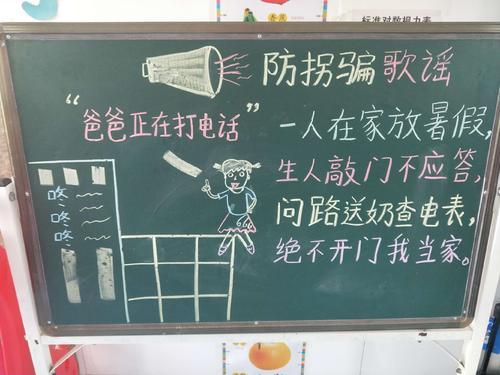 标准对数视力表
防拐骗歌谣
“爸爸正在打电话”
一人在家放暑假，
生人敲门不应答，
问路送奶查电表，
绝不开门我当家。
咚
咚
咚